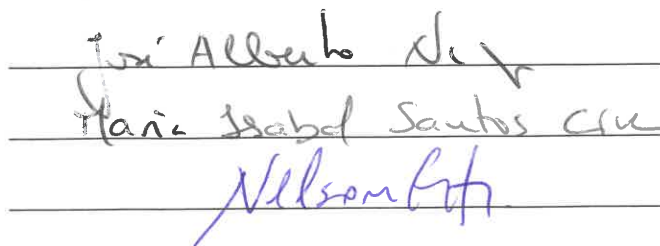 José Alberto
Maria Isabel Santos
Nelson